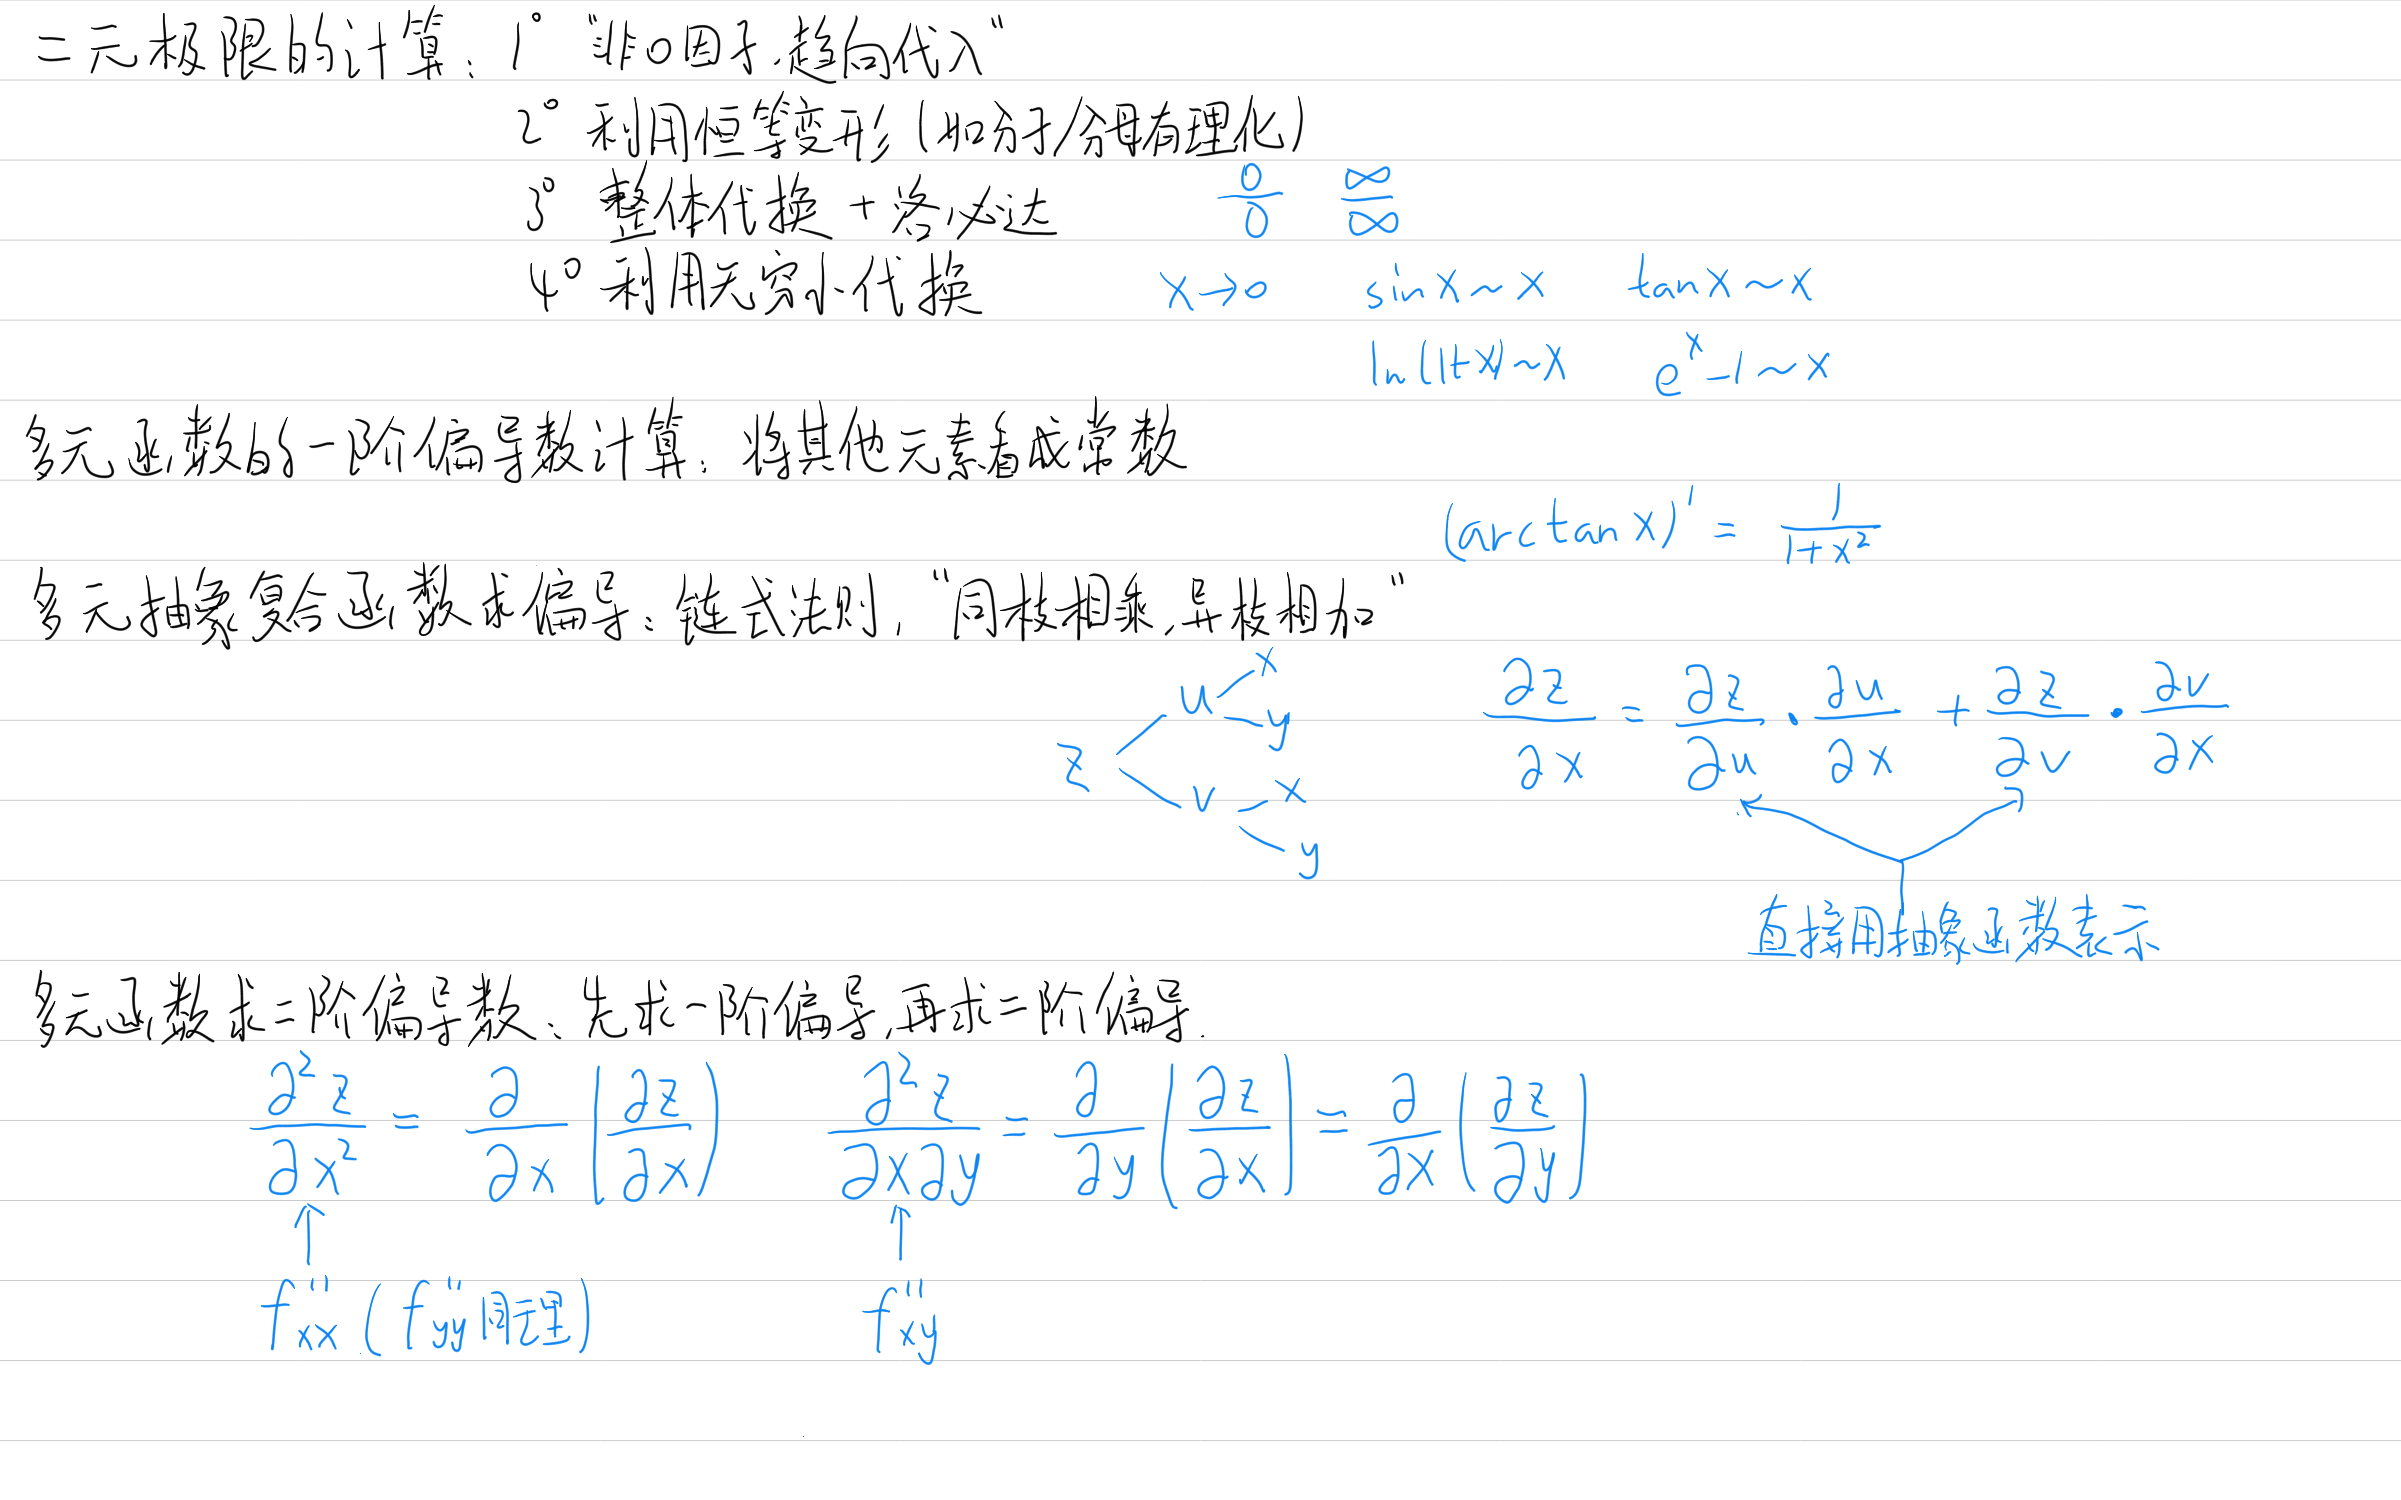 二元极限的计算：1° “非0因子，趋向代入”
2° 利用恒等变形（如分子/分母有理化）
3° 整体代换 + 洛必达 0/0 ∞/∞
4° 利用无穷小代换 x→0 sinx~x tanx~x
ln(1+x)~x e^x-1~x
多元函数的一阶偏导数计算：将其他元素看成常数
(arctanx)' = 1/(1+x²)
多元抽象复合函数求偏导：链式法则，“同枝相乘，异枝相加”
z u x y v x y
∂z/∂x = ∂z/∂u · ∂u/∂x + ∂z/∂v · ∂v/∂x
直接用抽象函数表示
多元函数求二阶偏导数：先求一阶偏导，再求二阶偏导.
∂²z/∂x² = ∂/∂x (∂z/∂x) ∂²z/∂x∂y = ∂/∂y (∂z/∂x) = ∂/∂x (∂z/∂y)
↑ ↑
f''xx (f''yy同理) f''xy